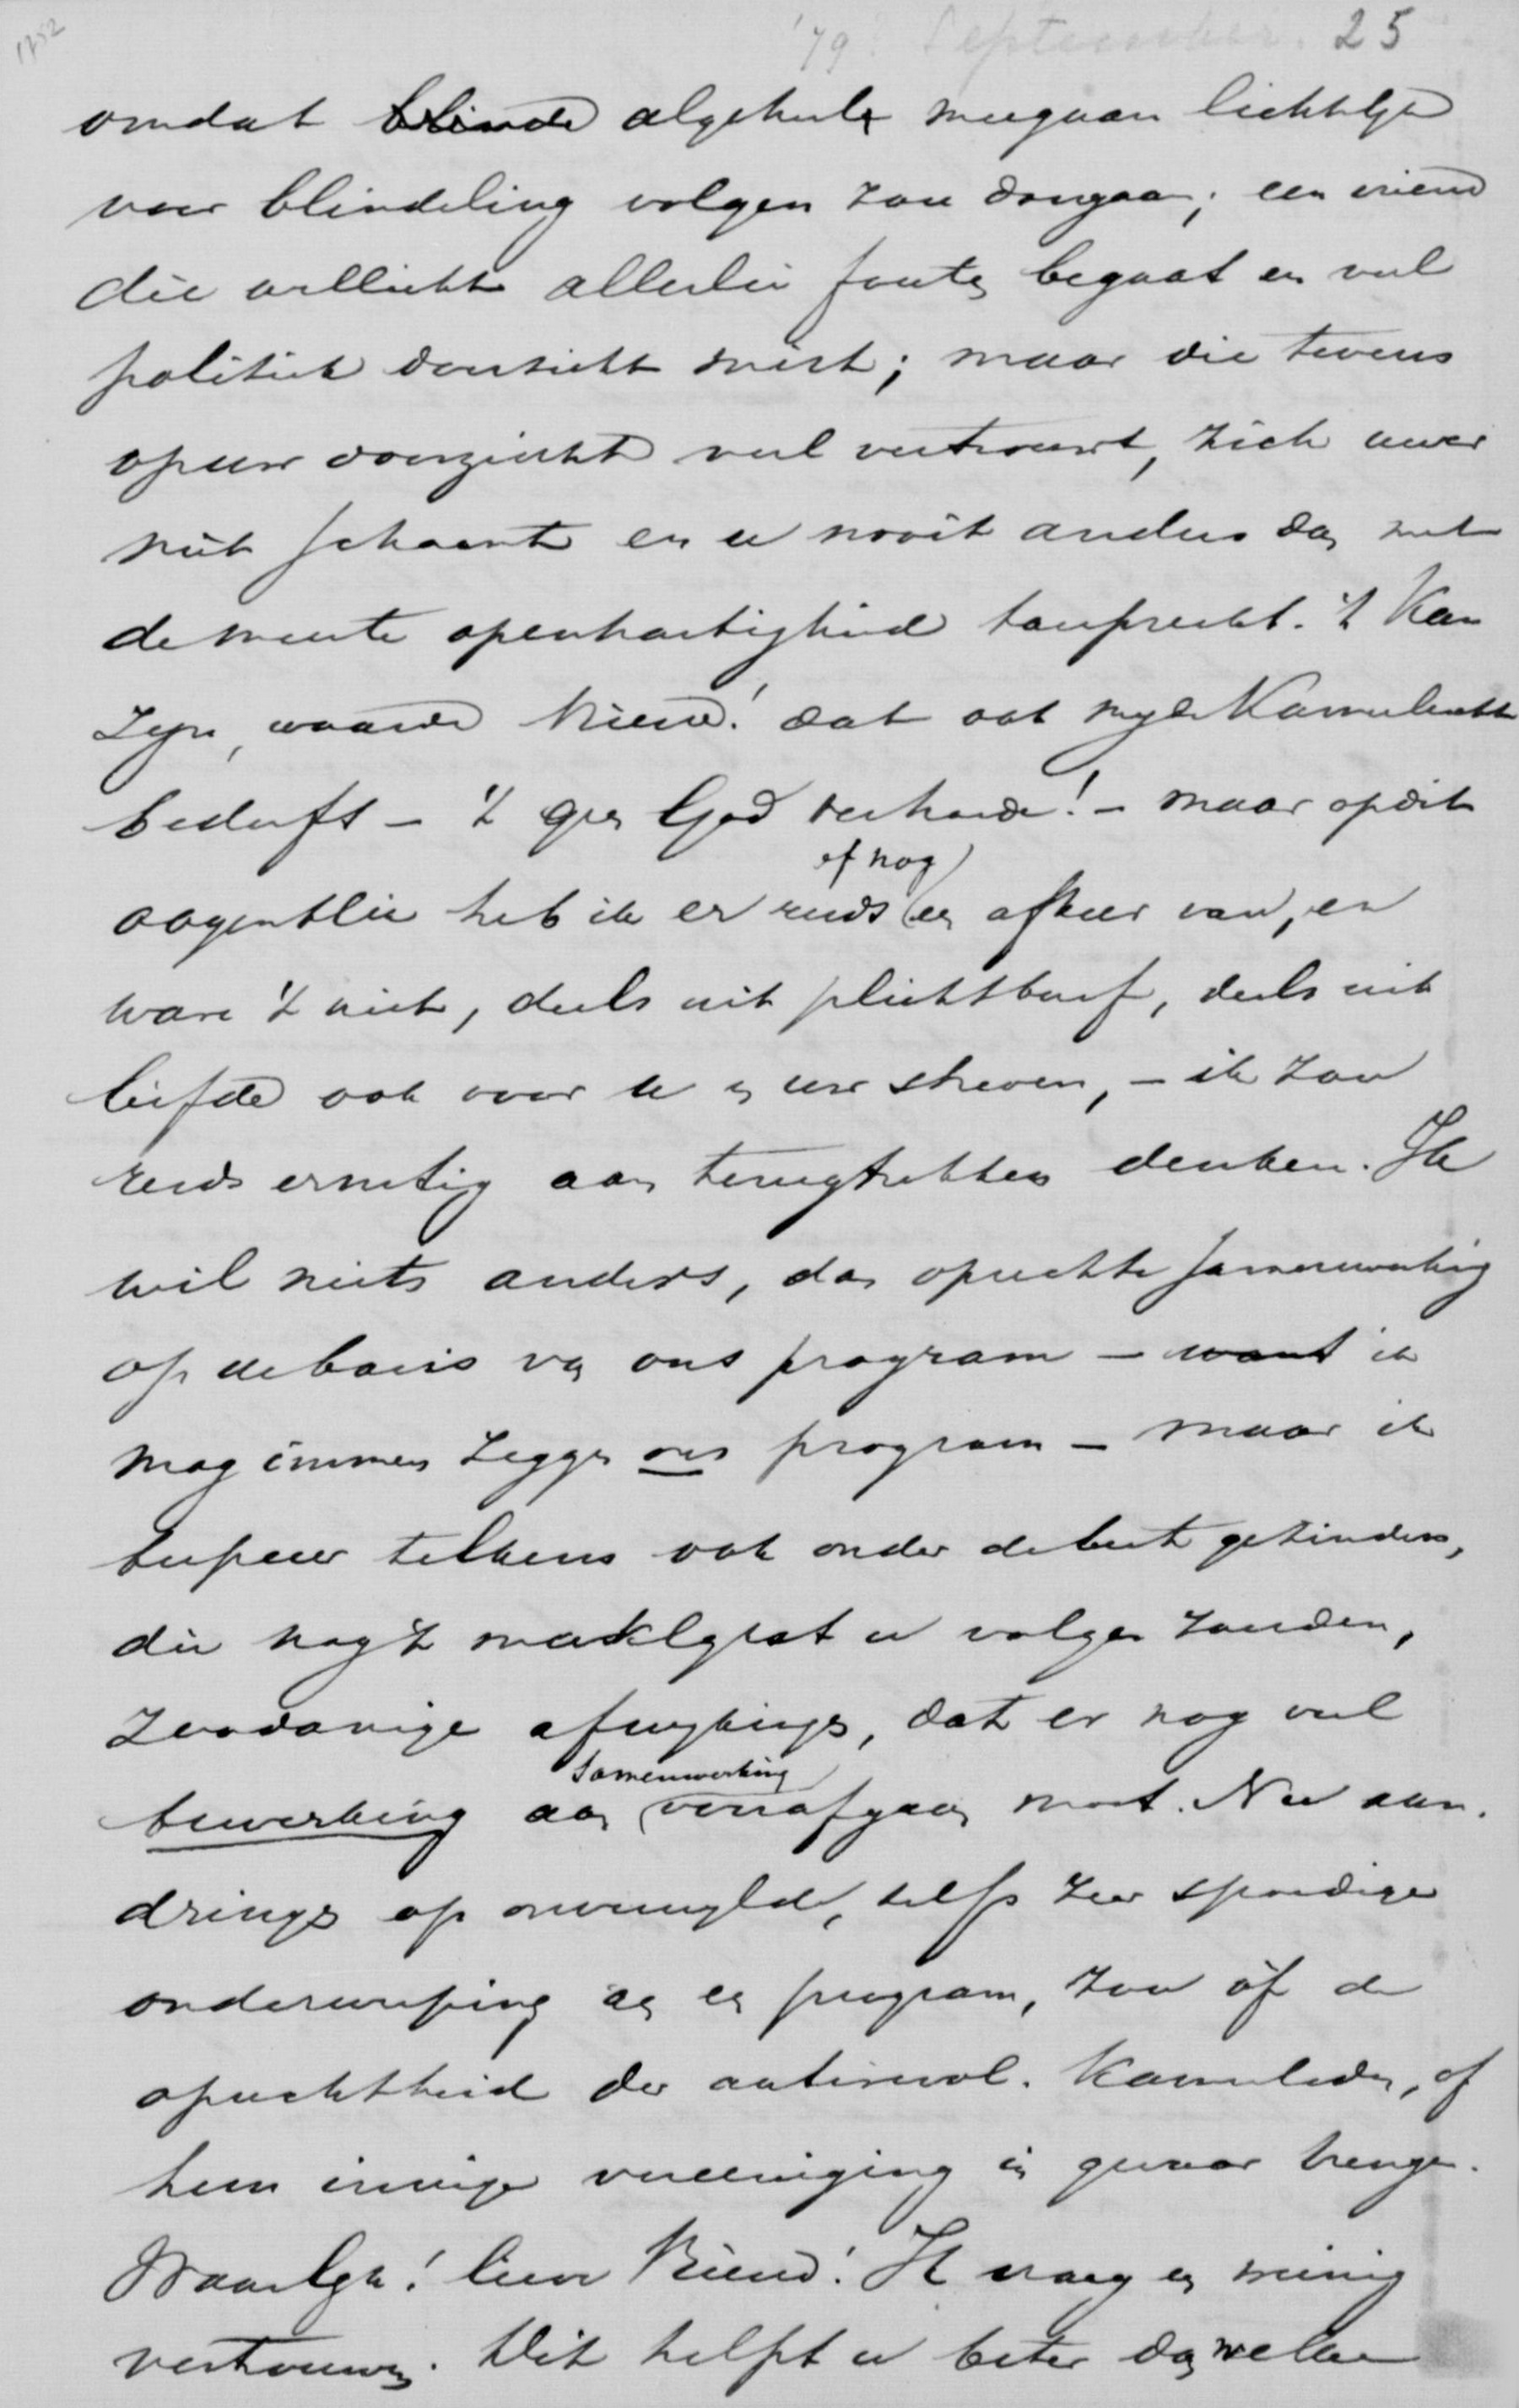 1752
'79. September. 25
omdat blinde algeheele meegaan lichtelijk
voor blindeling volgen zou doorgaan; een vriend
die wellicht allerlei fouten begaat en veel
politiek doorzicht mist; maar die tevens
op uw doorzicht veel vertrouwt, zich uwer
niet schaamt en u nooit anders dan met
de meeste openhartigheid toespreekt. 't Kan
zijn, waarde Vriend! dat ook mij de Kamerlucht
bederft – 't geen God verhoede! – maar op dit
oogenblik heb ik er reeds (een afkeer van, en
of nog)
ware 't niet, deels uit plichtbesef, deels uit
liefde ook voor u en uw streven, – ik zou
reeds ernstig aan terugtrekken denken. Ik
wil niets anders, dan oprechte samenwerking
op de basis van ons program – want ik
mag immers zeggen ons program – maar ik
bespeur telkens ook onder de best gezinden,
die nog 't maklijkst u volgen zouden,
zoodanige afwijkingen, dat er nog veel
samenwerking
bewerking aan (vooraf gaan moet. Nu aan-
dringen op onverwijlde, zelfs zeer spoedige
onderwerping aan een program, zou òf de
oprechtheid der antirevol. Kamerleden, of
hun innige vereeniging in gevaar brengen.
Waarlijk! lieve Vriend! Ik vraag een weinig
vertrouwen. Dit helpt u beter dan welke